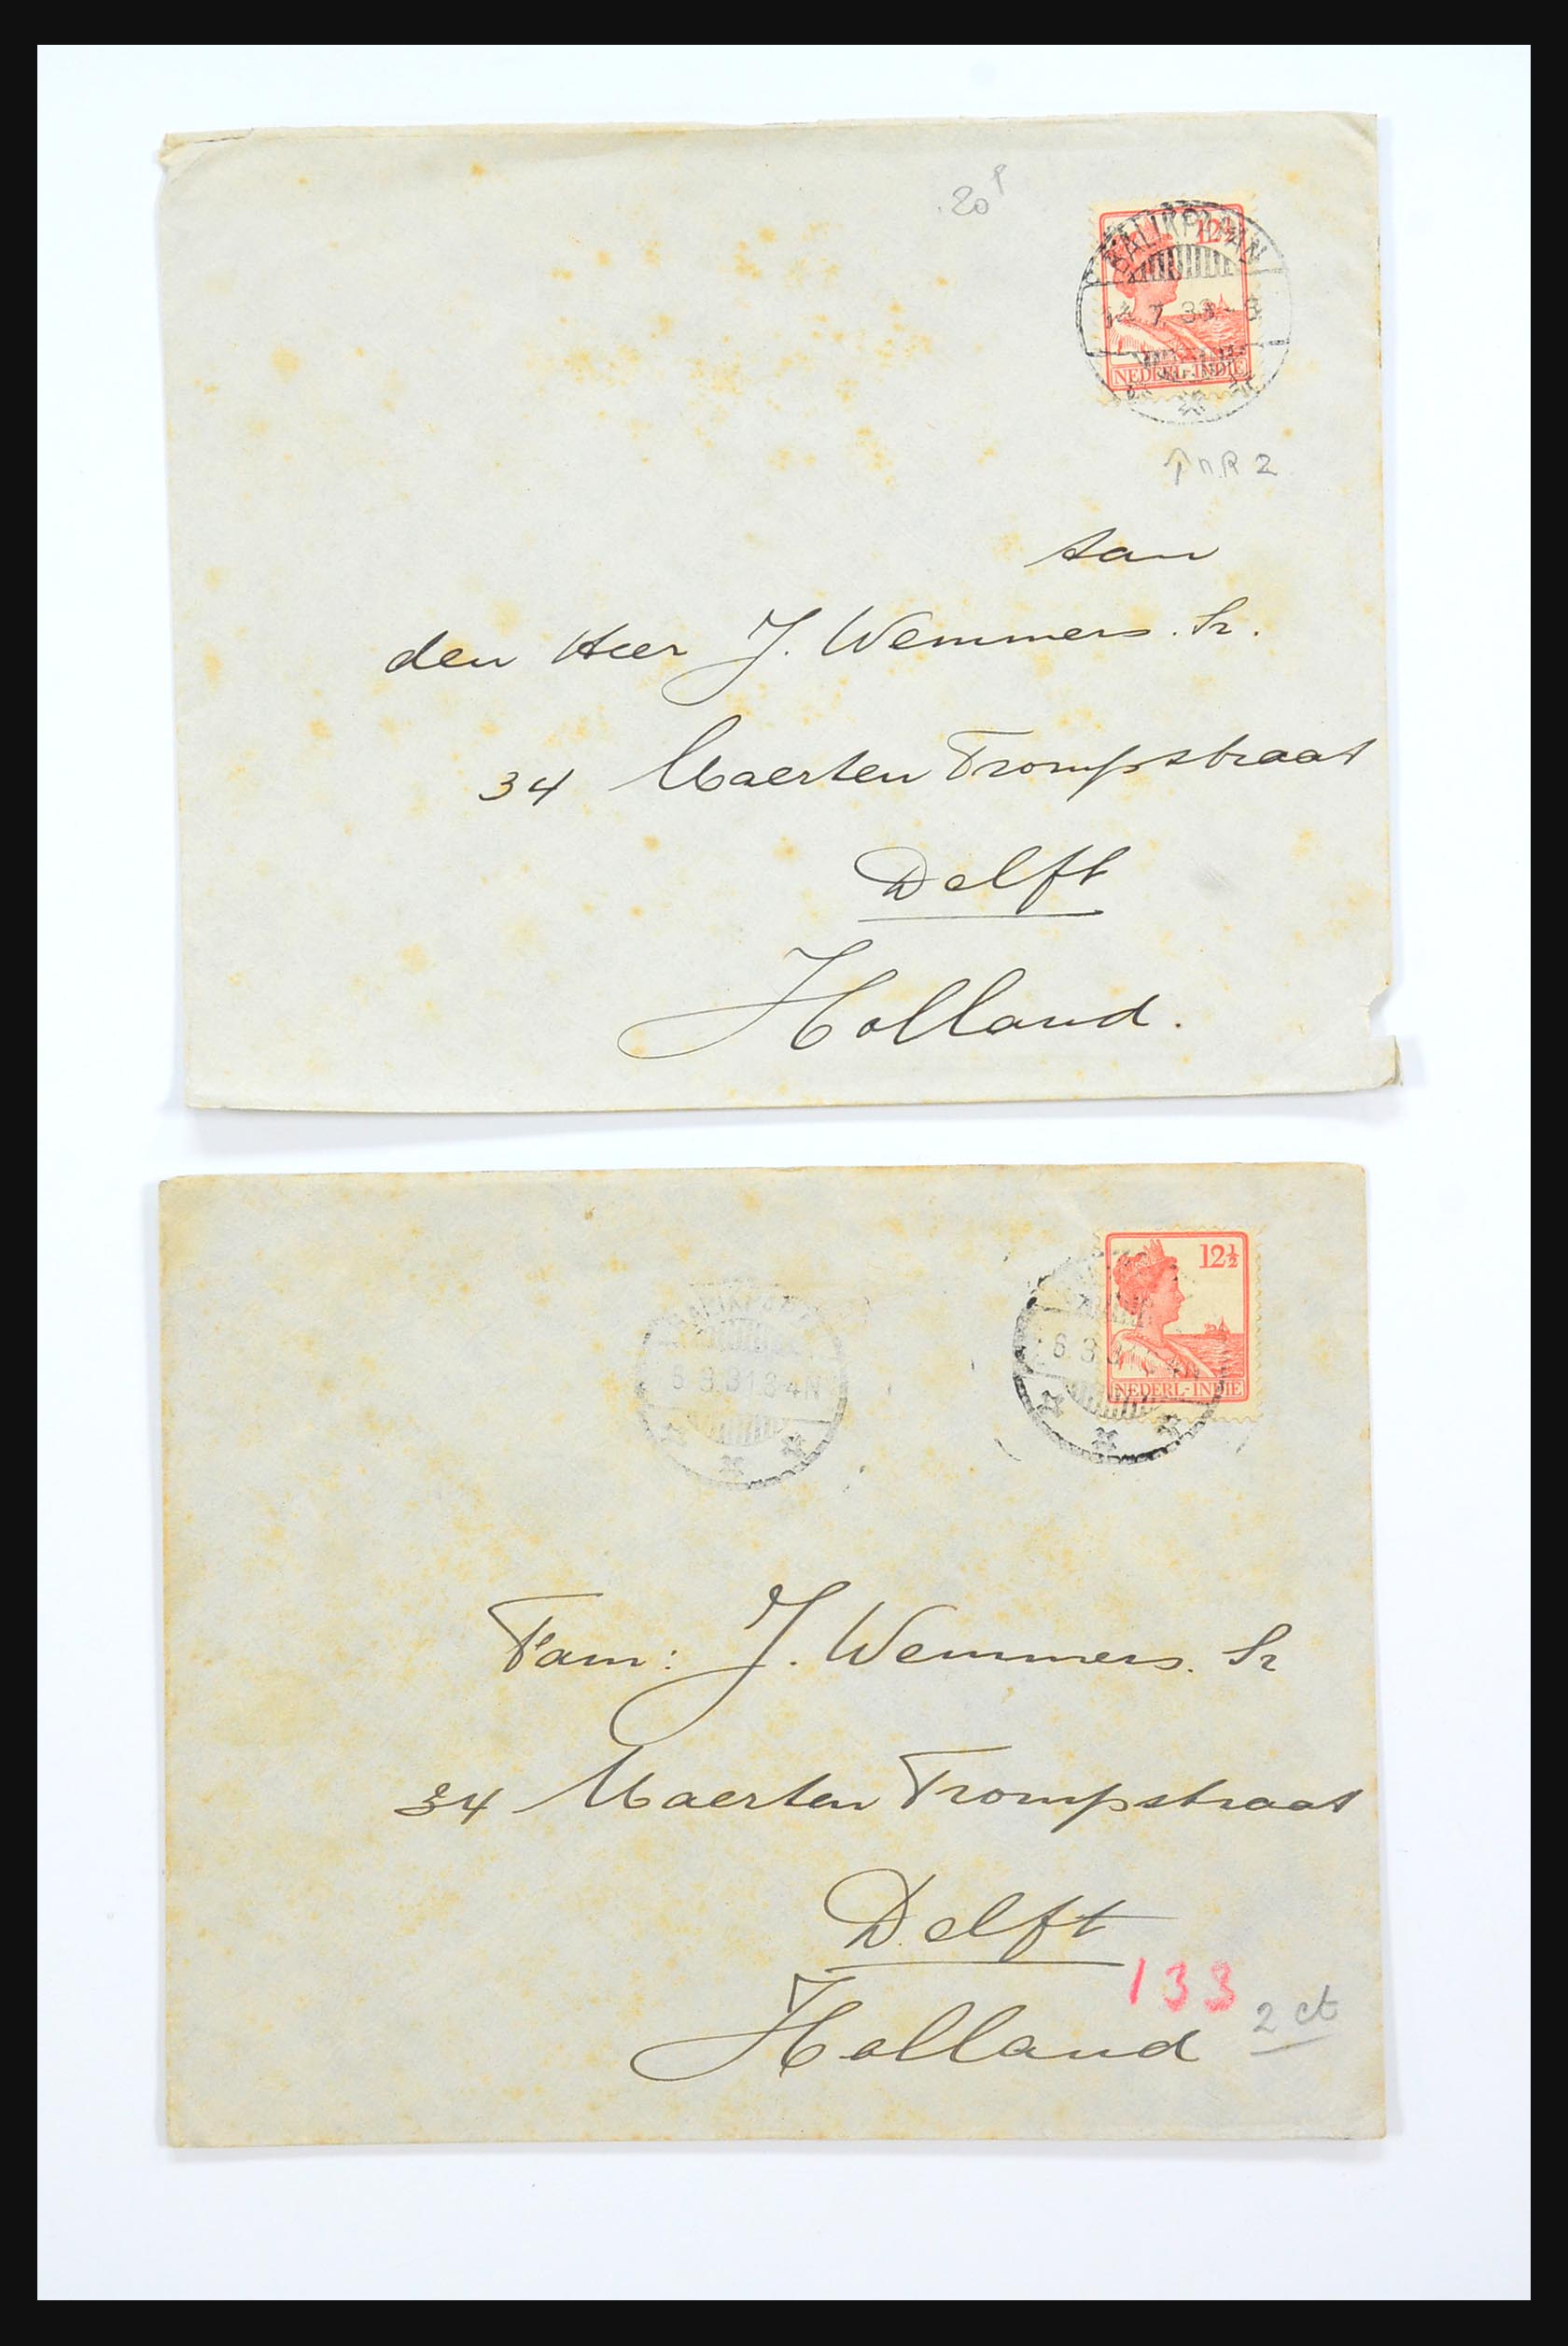 .20
12½
BALIKPAPAN
7.33
NEDERL-INDIE
n.R 2
Aan
den Heer J. Wemmers. Sr.
34 Maerten Trompstraat
Delft
Holland.
12½
BALIKPAPAN
6.3.31 3-4N
6.3.3 4N
NEDERL-INDIE
Fam: J. Wemmers. Sr
34 Maerten Trompstraat
Delft
133
2 ct
Holland